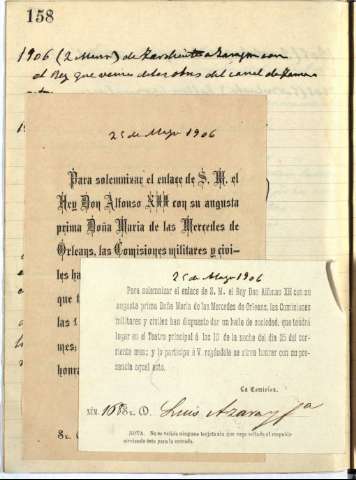 158
1906 (2 Marzo) de
el Rey que viene de las obras del canal de
25 de Mayo 1906
Para solemnizar el enlace de S. M. el
Rey Don Alfonso XII con su augusta
prima Doña Maria de las Mercedes de
Orleans, las Comisiones militares y civi-
les ha
que t
las 1
mes:
honra
Sr. D.
25 de Mayo 1906
Para solemnizar el enlace de S. M. el Rey Don Alfonso XII con su
augusta prima Doña Maria de las Mercedes de Orleans, las Comisiones
militares y civiles han dispuesto dar un baile de sociedad, que tendrá
lugar en el Teatro principal á las 10 de la noche del dia 25 del cor
riente mes; y lo participa á V. rogándole se sirva honrar con su pre-
sencia aquel acto.
La Comision.
NÚM. 168 Sr. D. Luis
NOTA. No es válida ninguna tarjeta sin que vaya sellada al respaldo
sirviendo ésta para la entrada.